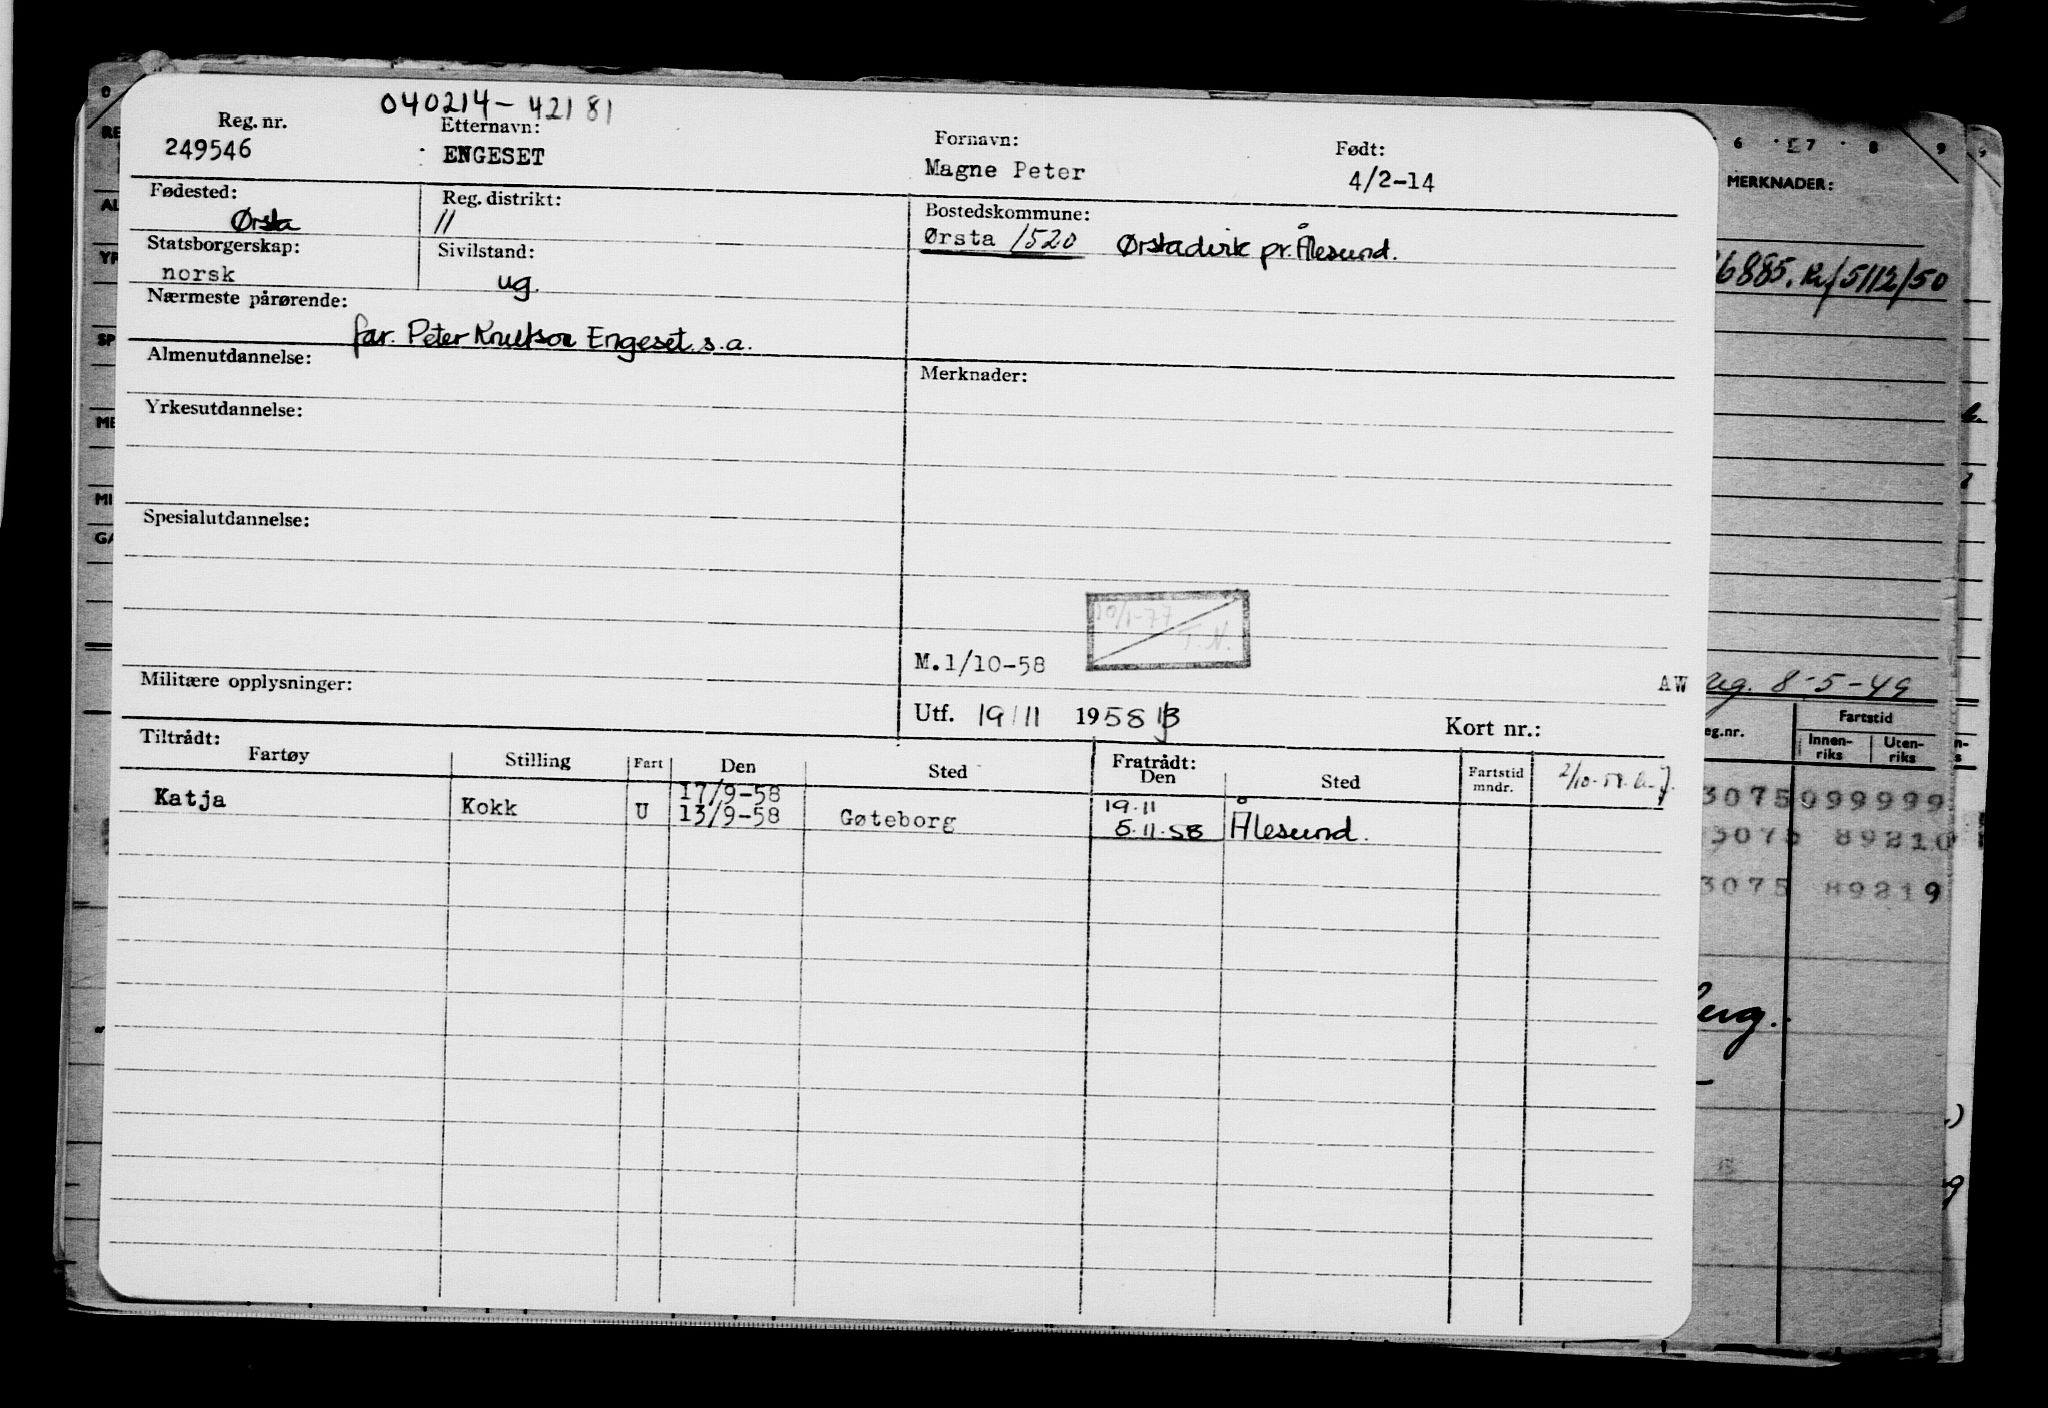 040214-42181
Reg. nr. Etternavn: Fornavn: Født:
249546 ENGESET Magne Peter 4/2-14
Fødested: Reg. distrikt: Bostedskommune:
Ørsta 11 Ørsta 1520 Ørstadvik pr. Ålesund.
Statsborgerskap: Sivilstand:
norsk ug.
Nærmeste pårørende:
far. Peter Knutson Engeset. s.a.
Almenutdannelse: Merknader:
Yrkesutdannelse:
Spesialutdannelse:
10/1-77
T.N.
M.1/10-58
Militære opplysninger: AW
Utf. 19/11 1958 Kort nr.:
Tiltrådt: Fratrådt:
Fartøy Stilling Fart Den Sted Den Sted Fartstid mndr.
17/9-58 19.11
Katja Kokk U 13/9-58 Gøteborg 5.11.58 Ålesund.
6 7 8 9
MERKNADER:
6885. 5/12/50
Reg. 8-5-49
eg.nr. Fartstid
Innen-
riks
Uten-
riks
3075 099999
3075 89210
3075 89219